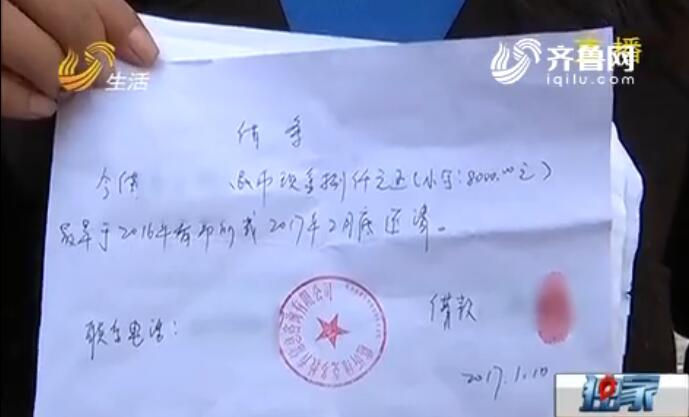 生活
直播
齐鲁网
iqilu.com
借条
今借 民币现金捌仟元还(小写:8000.00元)
最早于2016年 2017年2月底还清。
联系电话:
借款
2017.1.10
独家